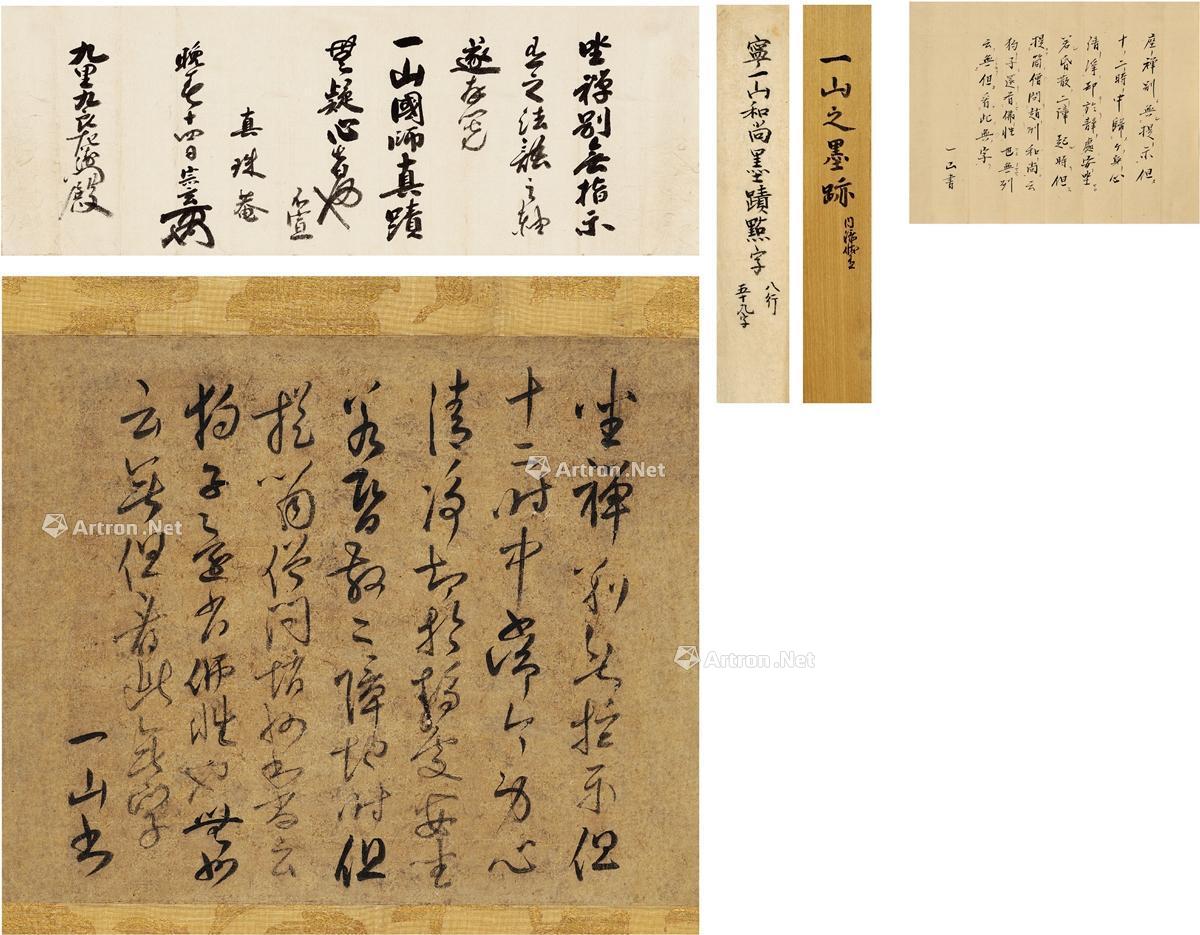 坐禅別無指示
之法語之軸
遂存覧
一山國師真蹟
無疑心者也
不宣
真珠菴
晚春十四日 宗
九里九兵衛殿
寧一山和尚墨蹟點字
八行
五十九字
一山之墨跡
座禅別無提示但
十二時中歸今無心
清淨却於靜處安坐
若昏散二障起時但
提箇僧問趙州和尚云
狗子還有佛性也無州
云無但看此無字
一山書
坐禅別無指示但
十二时中常令身心
清净却於静處安坐
若昏散二障起时但
提箇僧問趙州和尚云
狗子還有佛性也無州
云無但看此無字
一山书
Artron.Net
Artron.Net
Artron.Net